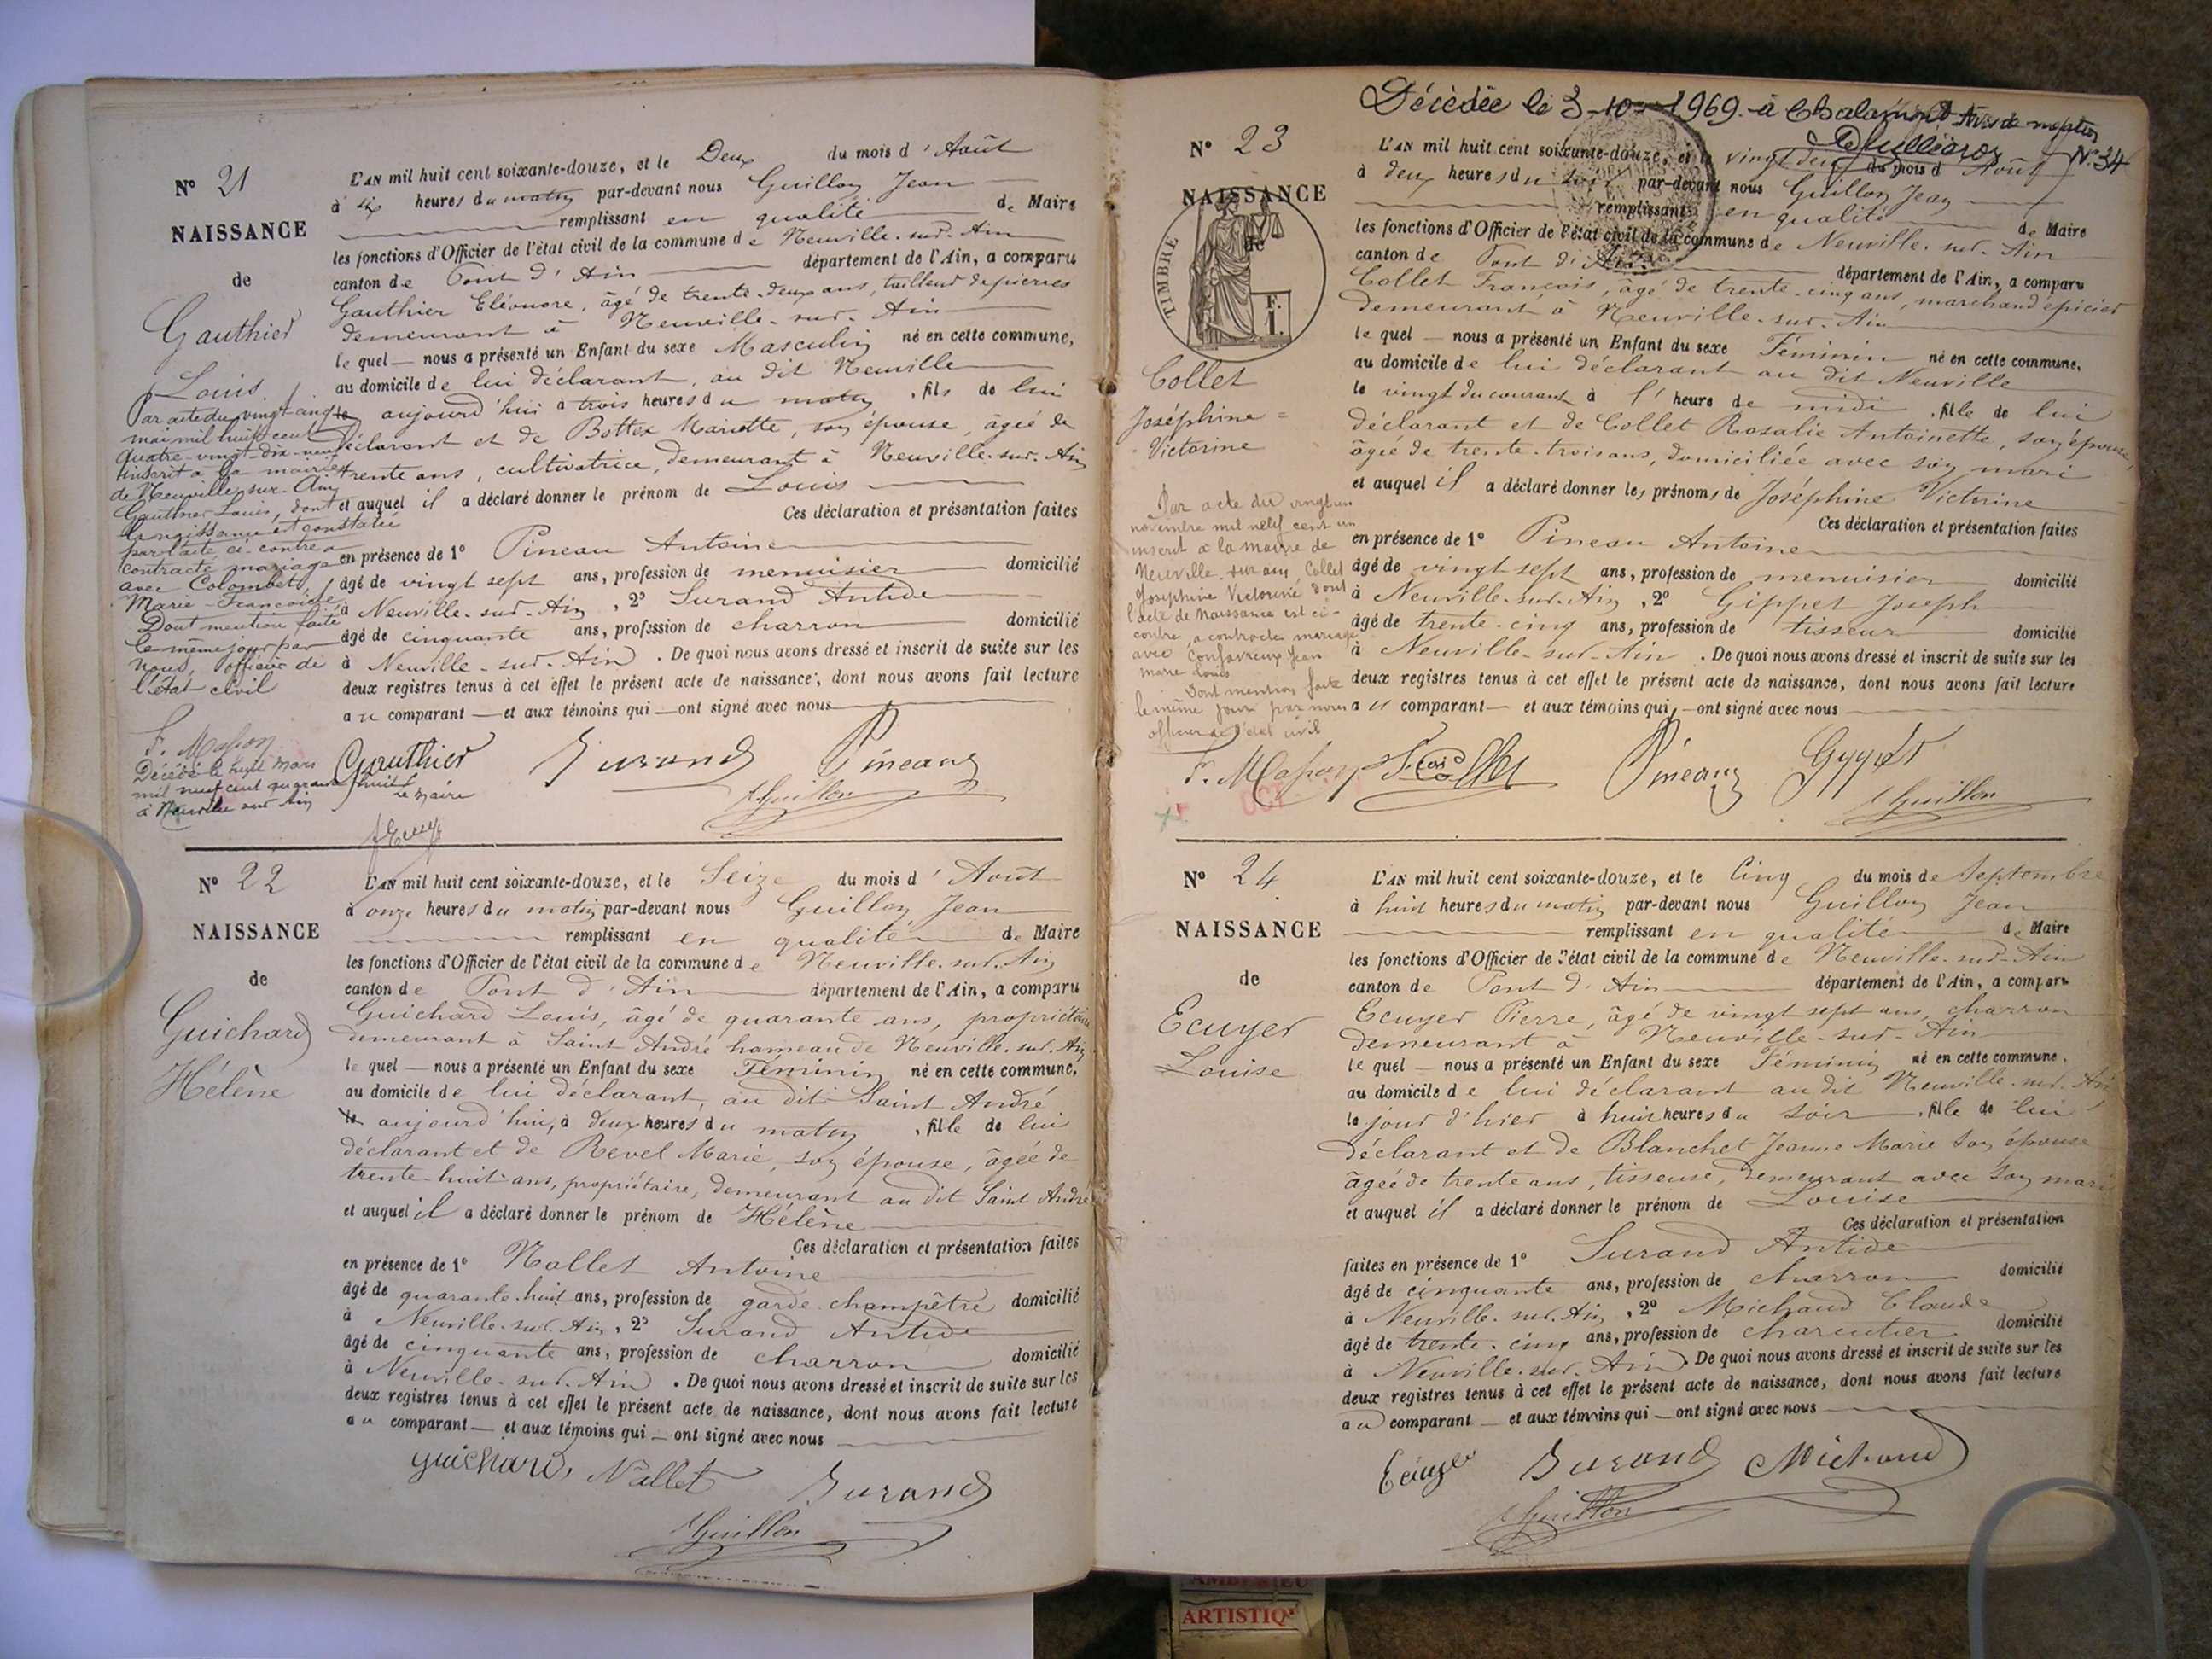 N° 21
NAISSANCE
de
Gauthier
Louis
Par acte du vingt-cinq
mai mil huit cent
quatre-vingt-dix-neuf
inscrit à la mairie
de Neuville-sur-Ain
Gauthier Louis, dont
la naissance est constatée
par l'acte ci-contre a
contracté mariage
avec Colombet
Marie-Françoise
Dont mention faite
le même jour par
nous, officier de
l'état civil
F. Mason
Décédé le huit Mars
mil neuf cent quarante huit
à Neuville sur Ain
le Maire
L'AN mil huit cent soixante-douze, et le Deux du mois d'Août
à six heures du matin par-devant nous Guillon Jean
remplissant en qualité de Maire
les fonctions d'Officier de l'état civil de la commune de Neuville-sur-Ain
canton de Pont d'Ain département de l'Ain, a comparu
Gauthier Eléonore, âgé de trente-deux ans, tailleur de pierres
demeurant à Neuville-sur-Ain
lequel nous a présenté un Enfant du sexe Masculin né en cette commune,
au domicile de lui déclarant, au dit Neuville
le aujourd'hui à trois heures du matin, fils de lui
déclarant et de Bottex Mariette, son épouse, âgée de
trente ans, cultivatrice, demeurant à Neuville-sur-Ain
et auquel il a déclaré donner le prénom de Louis
Ces déclaration et présentation faites
en présence de 1° Pineau Antoine
âgé de vingt sept ans, profession de menuisier domicilié
à Neuville-sur-Ain, 2° Surand Antide
âgé de cinquante ans, profession de charron domicilié
à Neuville-sur-Ain. De quoi nous avons dressé et inscrit de suite sur les
deux registres tenus à cet effet le présent acte de naissance, dont nous avons fait lecture
au comparant et aux témoins qui ont signé avec nous
Gauthier Surand Pineau
Guillon
N° 22
NAISSANCE
de
Guichard
Hélène
L'AN mil huit cent soixante-douze, et le Seize du mois d'Août
à onze heures du matin par-devant nous Guillon Jean
remplissant en qualité de Maire
les fonctions d'Officier de l'état civil de la commune de Neuville-sur-Ain
canton de Pont d'Ain département de l'Ain, a comparu
Guichard Louis, âgé de quarante ans, propriétaire
demeurant à Saint André hameau de Neuville-sur-Ain
lequel nous a présenté un Enfant du sexe Féminin né en cette commune,
au domicile de lui déclarant, au dit Saint André
le aujourd'hui, à deux heures du matin, fille de lui
déclarant et de Revel Marie, son épouse, âgée de
trente-huit ans, propriétaire, demeurant au dit Saint André
et auquel il a déclaré donner le prénom de Hélène
Ces déclaration et présentation faites
en présence de 1° Nallet Antoine
âgé de quarante-huit ans, profession de garde-champêtre domicilié
à Neuville-sur-Ain, 2° Surand Antide
âgé de cinquante ans, profession de charron domicilié
à Neuville-sur-Ain. De quoi nous avons dressé et inscrit de suite sur les
deux registres tenus à cet effet le présent acte de naissance, dont nous avons fait lecture
au comparant et aux témoins qui ont signé avec nous
Guichard Nallet Surand
Guillon
Décédée le 3-10-1969 à Chalamont Avis de mention
N° 34
N° 23
NAISSANCE
de
TIMBRE
F.
1.
Collet
Joséphine=
Victorine
Par acte du vingt un
novembre mil neuf cent un
inscrit à la mairie de
Neuville-sur-ain, Collet
Joséphine Victorine dont
l'acte de naissance est ci-
contre, a contracté mariage
avec Confavreux Jean
marie Louis
Dont mention faite
le même jour par nous
officier de l'état civil
F. Mason
L'AN mil huit cent soixante-douze, et le vingt deux du mois d'Août
à deux heures du soir par-devant nous Guillon Jean
remplissant en qualité de Maire
les fonctions d'Officier de l'état civil de la commune de Neuville-sur-Ain
canton de Pont d'Ain département de l'Ain, a comparu
Collet François, âgé de trente-cinq ans, marchand épicier
demeurant à Neuville-sur-Ain
lequel nous a présenté un Enfant du sexe Féminin né en cette commune,
au domicile de lui déclarant au dit Neuville
le vingt du courant à l'heure de midi, fille de lui
déclarant et de Collet Rosalie Antoinette, son épouse,
âgée de trente-trois ans, domiciliée avec son mari
et auquel il a déclaré donner les prénoms de Joséphine Victorine
Ces déclaration et présentation faites
en présence de 1° Pineau Antoine
âgé de vingt sept ans, profession de menuisier domicilié
à Neuville-sur-Ain, 2° Gippet Joseph
âgé de trente-cinq ans, profession de tisseur domicilié
à Neuville-sur-Ain. De quoi nous avons dressé et inscrit de suite sur les
deux registres tenus à cet effet le présent acte de naissance, dont nous avons fait lecture
au comparant et aux témoins qui ont signé avec nous
Fcois Collet Pineau Gyppet
Guillon
N° 24
NAISSANCE
de
Ecuyer
Louise
L'AN mil huit cent soixante-douze, et le Cinq du mois de Septembre
à huit heures du matin par-devant nous Guillon Jean
remplissant en qualité de Maire
les fonctions d'Officier de l'état civil de la commune de Neuville-sur-Ain
canton de Pont d'Ain département de l'Ain, a comparu
Ecuyer Pierre, âgé de vingt sept ans, charron
demeurant à Neuville-sur-Ain
lequel nous a présenté un Enfant du sexe Féminin né en cette commune,
au domicile de lui déclarant au dit Neuville-sur-Ain
le jour d'hier à huit heures du soir, fille de lui
déclarant et de Blanchet Jeanne Marie son épouse
âgée de trente ans, tisseuse, demeurant avec son mari
et auquel il a déclaré donner le prénom de Louise
Ces déclaration et présentation
faites en présence de 1° Surand Antide
âgé de cinquante ans, profession de charron domicilié
à Neuville-sur-Ain, 2° Michaud Claude
âgé de trente-cinq ans, profession de charcutier domicilié
à Neuville-sur-Ain. De quoi nous avons dressé et inscrit de suite sur les
deux registres tenus à cet effet le présent acte de naissance, dont nous avons fait lecture
au comparant et aux témoins qui ont signé avec nous
Ecuyer Surand Michaud
Guillon
AMBERIEU
ARTISTIQ